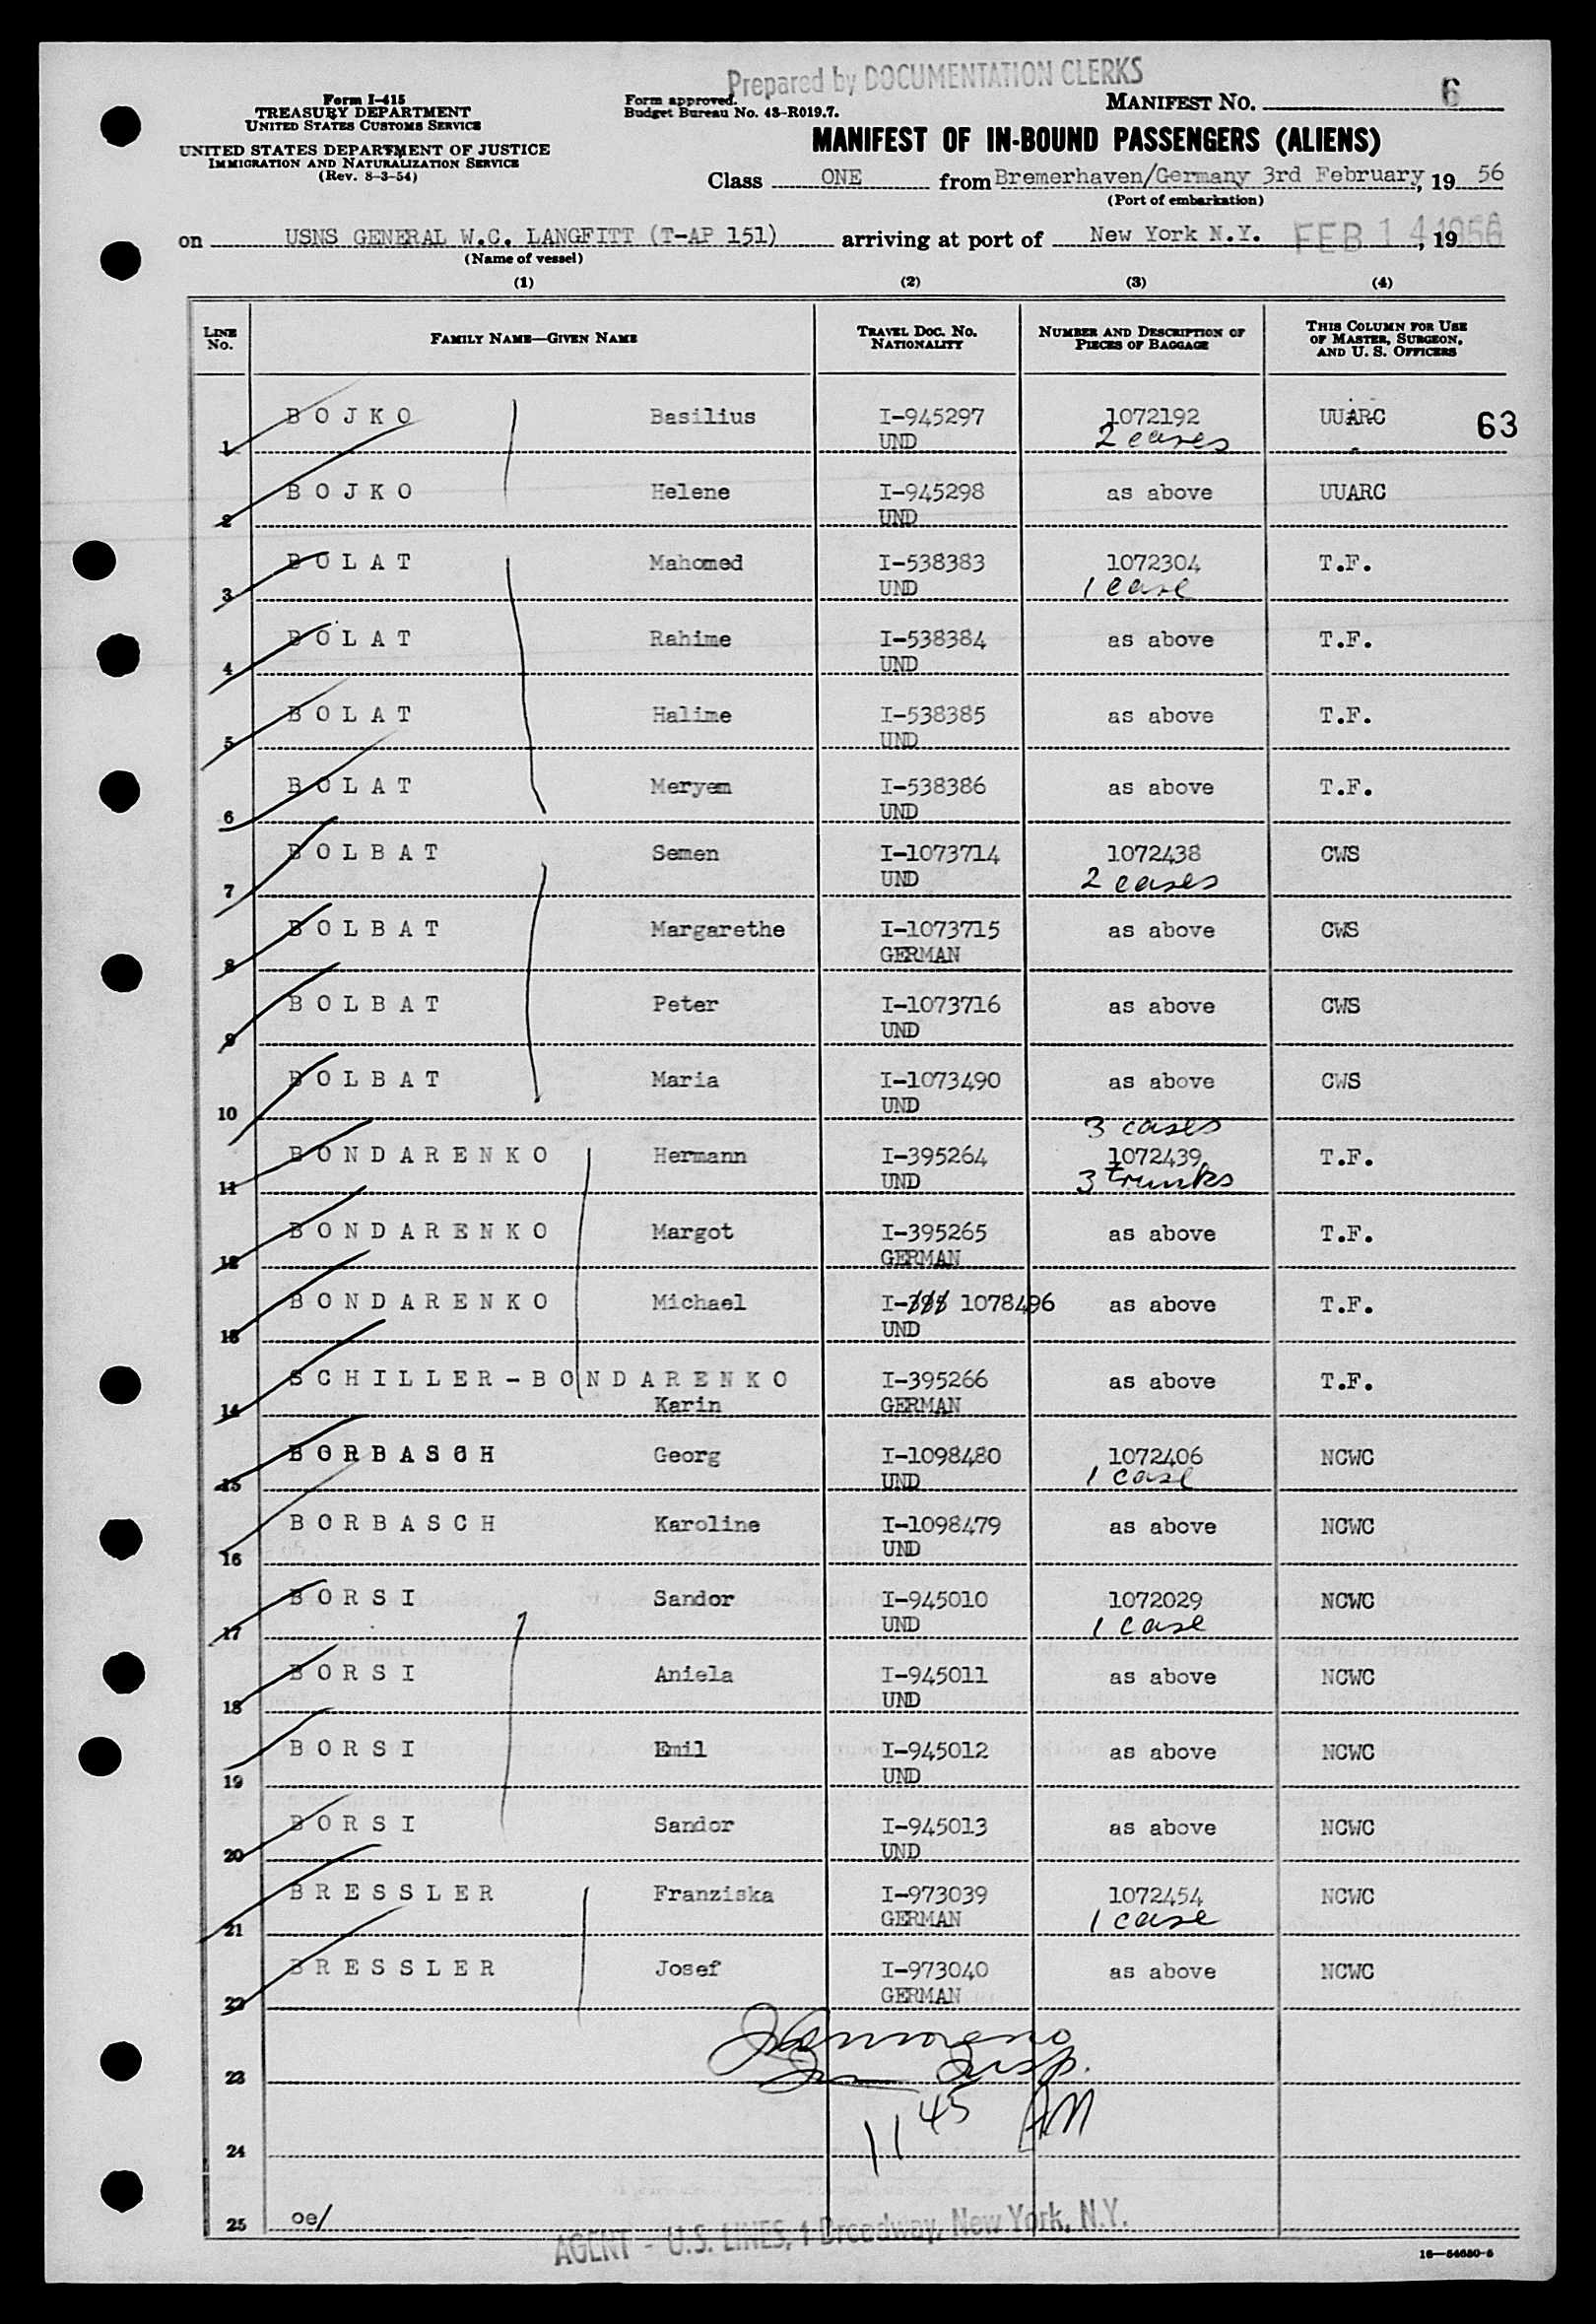 Prepared by DOCUMENTATION CLERKS
Form I-415
TREASURY DEPARTMENT
UNITED STATES CUSTOMS SERVICE
UNITED STATES DEPARTMENT OF JUSTICE
IMMIGRATION AND NATURALIZATION SERVICE
(Rev. 8-3-54)
Form approved.
Budget Bureau No. 43-R019.7.
MANIFEST NO. 6
MANIFEST OF IN-BOUND PASSENGERS (ALIENS)
Class ONE from Bremerhaven/Germany 3rd February, 19 56
(Port of embarkation)
on USNS GENERAL W.C. LANGFITT (T-AP 151) arriving at port of New York N.Y. FEB 14 1956, 19
(Name of vessel)
(1) (2) (3) (4)
LINE No. FAMILY NAME—GIVEN NAME TRAVEL DOC. NO. NATIONALITY NUMBER AND DESCRIPTION OF PIECES OF BAGGAGE THIS COLUMN FOR USE OF MASTER, SURGEON, AND U. S. OFFICERS
1 BOJKO Basilius I-945297 1072192 UUARC 63
UND 2 cases
2 BOJKO Helene I-945298 as above UUARC
UND
3 BOLAT Mahomed I-538383 1072304 T.F.
UND 1 case
4 BOLAT Rahime I-538384 as above T.F.
UND
5 BOLAT Halime I-538385 as above T.F.
UND
6 BOLAT Meryem I-538386 as above T.F.
UND
7 BOLBAT Semen I-1073714 1072438 CWS
UND 2 cases
8 BOLBAT Margarethe I-1073715 as above CWS
GERMAN
9 BOLBAT Peter I-1073716 as above CWS
UND
10 BOLBAT Maria I-1073490 as above CWS
UND
3 cases
11 BONDARENKO Hermann I-395264 1072439 T.F.
UND 3 trunks
12 BONDARENKO Margot I-395265 as above T.F.
GERMAN
13 BONDARENKO Michael I- 1078496 as above T.F.
UND
14 SCHILLER-BONDARENKO I-395266 as above T.F.
Karin GERMAN
15 BORBASCH Georg I-1098480 1072406 NCWC
UND 1 case
16 BORBASCH Karoline I-1098479 as above NCWC
UND
17 BORSI Sandor I-945010 1072029 NCWC
UND 1 case
18 BORSI Aniela I-945011 as above NCWC
UND
19 BORSI Emil I-945012 as above NCWC
UND
20 BORSI Sandor I-945013 as above NCWC
UND
21 BRESSLER Franziska I-973039 1072454 NCWC
GERMAN 1 case
22 BRESSLER Josef I-973040 as above NCWC
GERMAN
23 Insp.
11 45 AM
24
25 oe/
AGENT - U.S. LINES, 1 Broadway, New York, N.Y.
16—54650-5